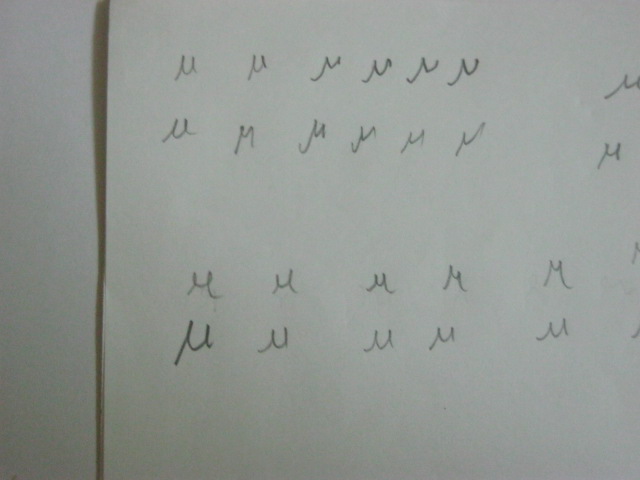 μ μ μ μ μ μ μ
μ μ μ μ μ μ μ
μ μ μ μ μ
μ μ μ μ μ